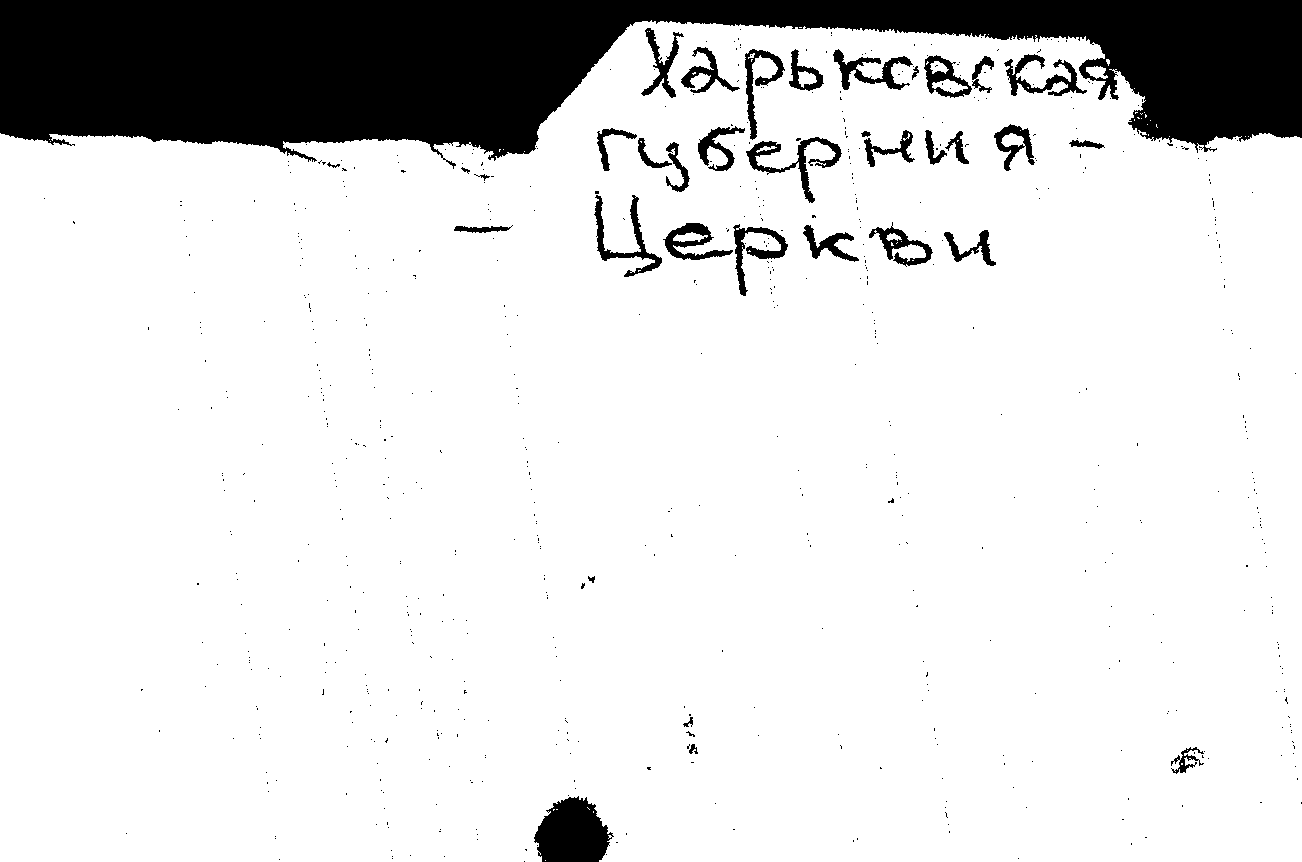 Харьковская
губерния -
- Церкви